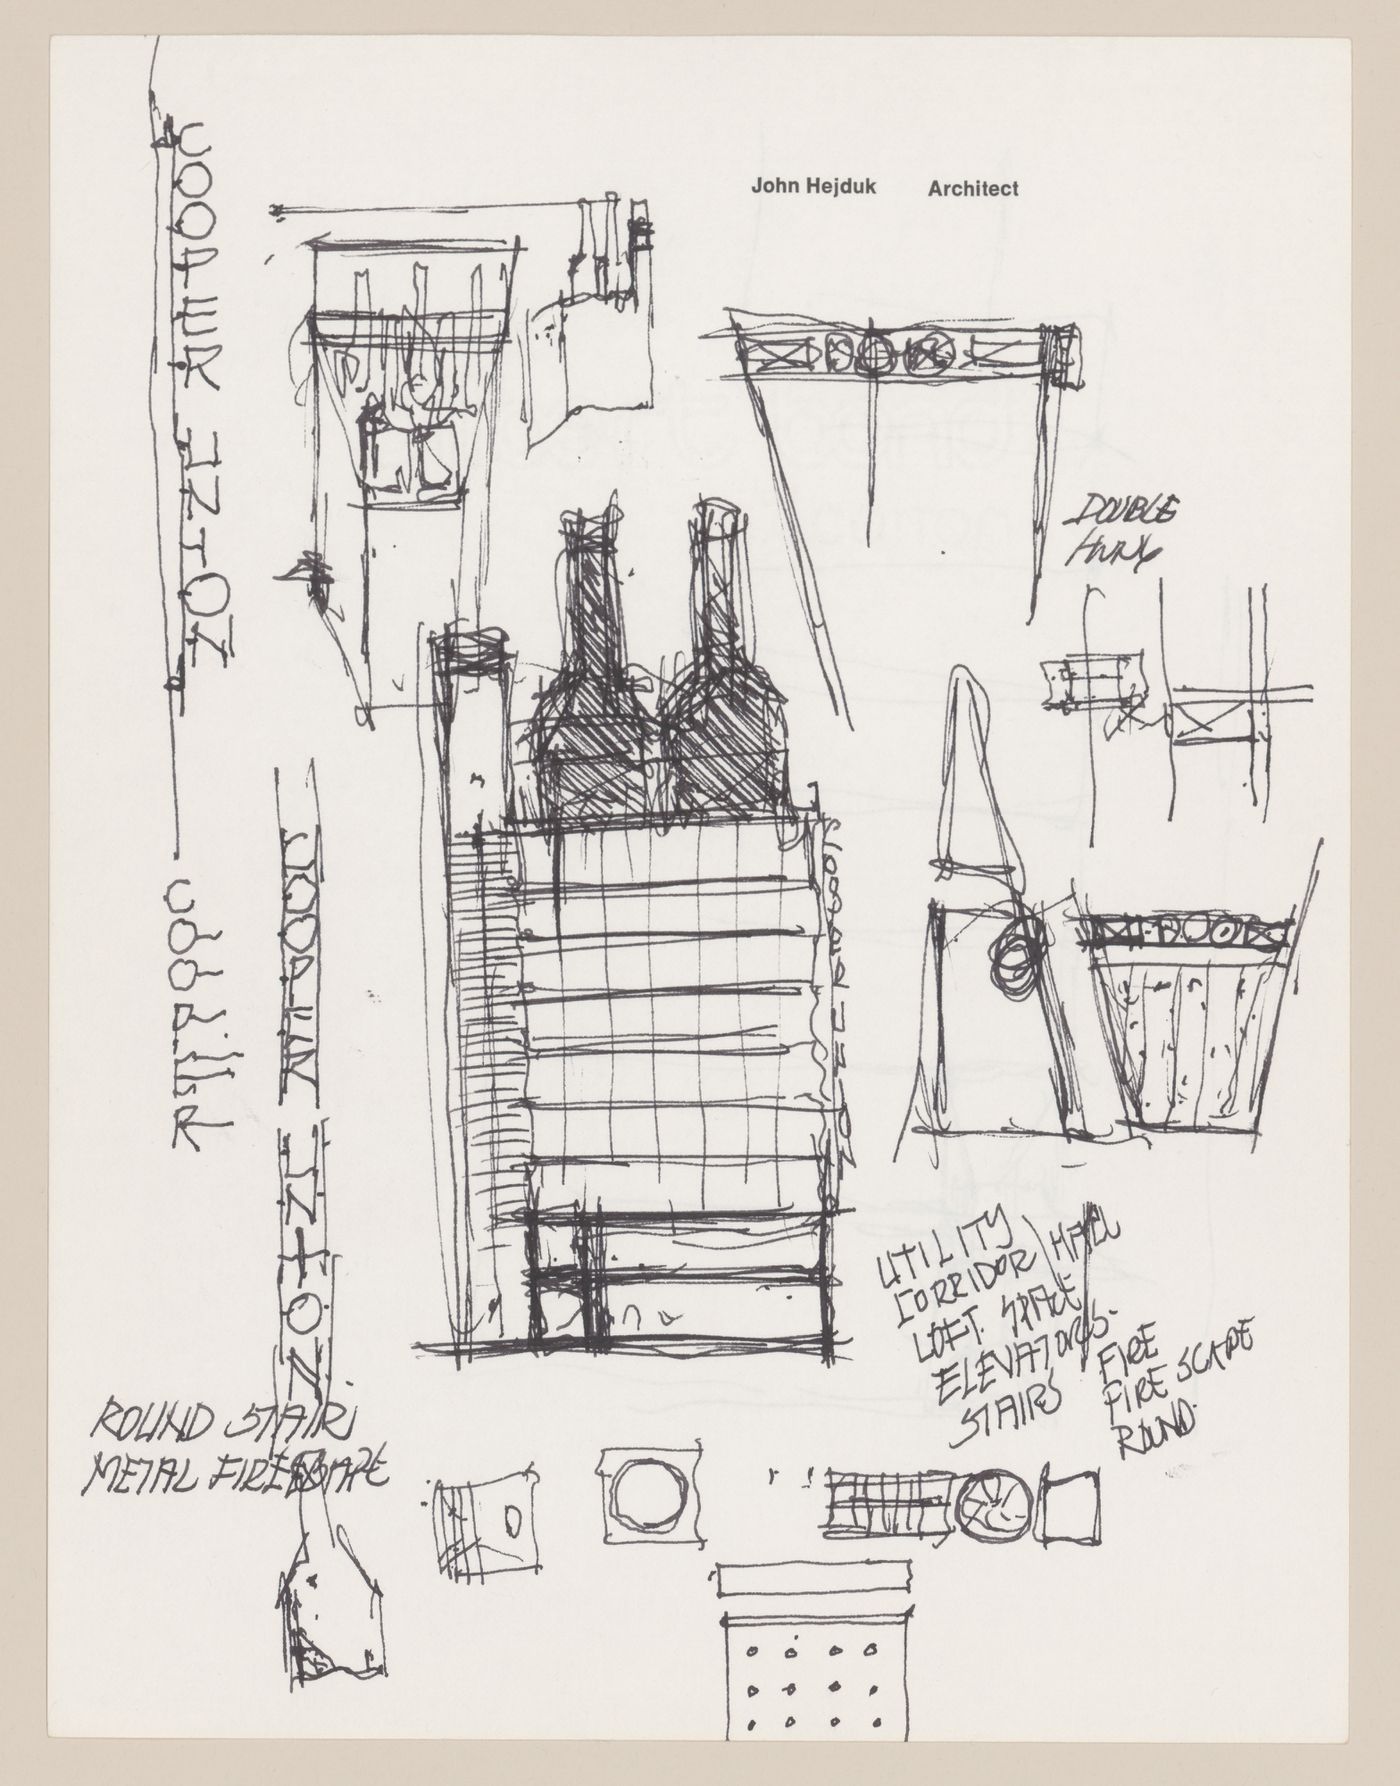 John Hejduk Architect
COOPER UNION
DOUBLE
COOPER UNION
COOPER
COOPER UNION
UTILITY
CORRIDOR \ HALL
LOFT SPACE
ELEVATORS.
STAIRS
FIRE
FIRE SCAPE
ROUND.
ROUND STAIR
METAL FIRE